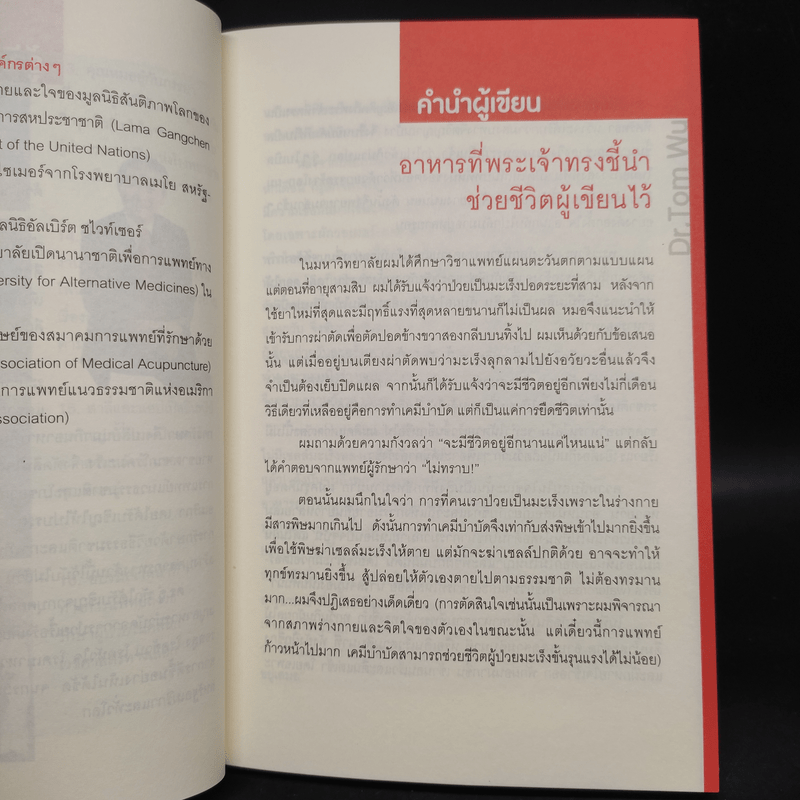 ค์กรต่างๆ
ายและใจของมูลนิธิสันติภาพโลกของ
การสหประชาชาติ (Lama Gangchen
t of the United Nations)
ไซเมอร์จากโรงพยาบาลเมโย สหรัฐ-
ลนิธิอัลเบิร์ต ชไวท์เซอร์
ยาลัยเปิดนานาชาติเพื่อการแพทย์ทาง
ersity for Alternative Medicines) ใน
ษย์ของสมาคมการแพทย์ที่รักษาด้วย
sociation of Medical Acupuncture)
การแพทย์แนวธรรมชาติแห่งอเมริกา
ssociation)
คำนำผู้เขียน
อาหารที่พระเจ้าทรงชี้นำ
ช่วยชีวิตผู้เขียนไว้
Dr.Tom Wu
ในมหาวิทยาลัยผมได้ศึกษาวิชาแพทย์แผนตะวันตกตามแบบแผน
แต่ตอนที่อายุสามสิบ ผมได้รับแจ้งว่าป่วยเป็นมะเร็งปอดระยะที่สาม หลังจาก
ใช้ยาใหม่ที่สุดและมีฤทธิ์แรงที่สุดหลายขนานก็ไม่เป็นผล หมอจึงแนะนำให้
เข้ารับการผ่าตัดเพื่อตัดปอดข้างขวาสองกลีบบนทิ้งไป ผมเห็นด้วยกับข้อเสนอ
นั้น แต่เมื่ออยู่บนเตียงผ่าตัดพบว่ามะเร็งลุกลามไปยังอวัยวะอื่นแล้วจึง
จำเป็นต้องเย็บปิดแผล จากนั้นก็ได้รับแจ้งว่าจะมีชีวิตอยู่อีกเพียงไม่กี่เดือน
วิธีเดียวที่เหลืออยู่คือการทำเคมีบำบัด แต่ก็เป็นแค่การยืดชีวิตเท่านั้น
ผมถามด้วยความกังวลว่า “จะมีชีวิตอยู่อีกนานแค่ไหนแน่” แต่กลับ
ได้คำตอบจากแพทย์ผู้รักษาว่า “ไม่ทราบ!”
ตอนนั้นผมนึกในใจว่า การที่คนเราป่วยเป็นมะเร็งเพราะในร่างกาย
มีสารพิษมากเกินไป ดังนั้นการทำเคมีบำบัดจึงเท่ากับส่งพิษเข้าไปมากยิ่งขึ้น
เพื่อใช้พิษฆ่าเซลล์มะเร็งให้ตาย แต่มักจะฆ่าเซลล์ปกติด้วย อาจจะทำให้
ทุกข์ทรมานยิ่งขึ้น สู้ปล่อยให้ตัวเองตายไปตามธรรมชาติ ไม่ต้องทรมาน
มาก...ผมจึงปฏิเสธอย่างเด็ดเดี่ยว (การตัดสินใจเช่นนั้นเป็นเพราะผมพิจารณา
จากสภาพร่างกายและจิตใจของตัวเองในขณะนั้น แต่เดี๋ยวนี้การแพทย์
ก้าวหน้าไปมาก เคมีบำบัดสามารถช่วยชีวิตผู้ป่วยมะเร็งขั้นรุนแรงได้ไม่น้อย)